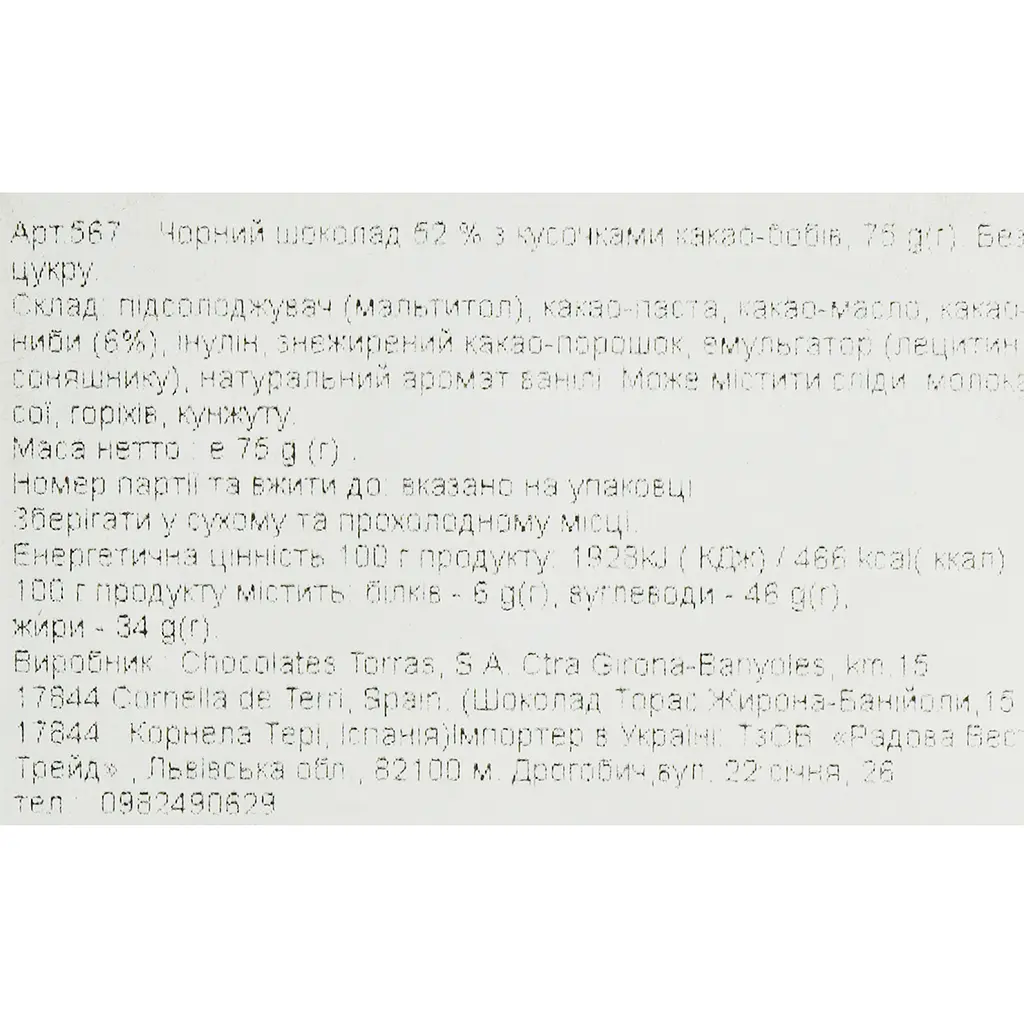 Арт.567 Чорний шоколад 52 % з кусочками какао-бобів, 75 g(г). Без
цукру.
Склад: підсолоджувач (мальтитол), какао-паста, какао-масло, какао-
ниби (6%), інулін, знежирений какао-порошок, емульгатор (лецитин
соняшнику), натуральний аромат ванілі. Може містити сліди молока
сої, горіхів, кунжуту.
Маса нетто : е 75 g (г) .
Номер партії та вжити до: вказано на упаковці
Зберігати у сухому та прохолодному місці.
Енергетична цінність 100 г продукту: 1928kJ ( КДж) / 466 kcal( ккал)
100 г продукту містить: білків - 6 g(г), вуглеводи - 46 g(г),
жири - 34 g(г).
Виробник : Chocolates Torras, S.A. Ctra Girona-Banyoles, km.15
17844 Cornella de Terri, Spain. (Шоколад Торас Жирона-Банйоли,15
17844 Корнела Тері, Іспанія)Імпортер в Україні: ТзОВ «Радова Вест
Трейд» , Львівська обл., 82100 м. Дрогобич,вул. 22 січня, 26
тел.: 0982490629